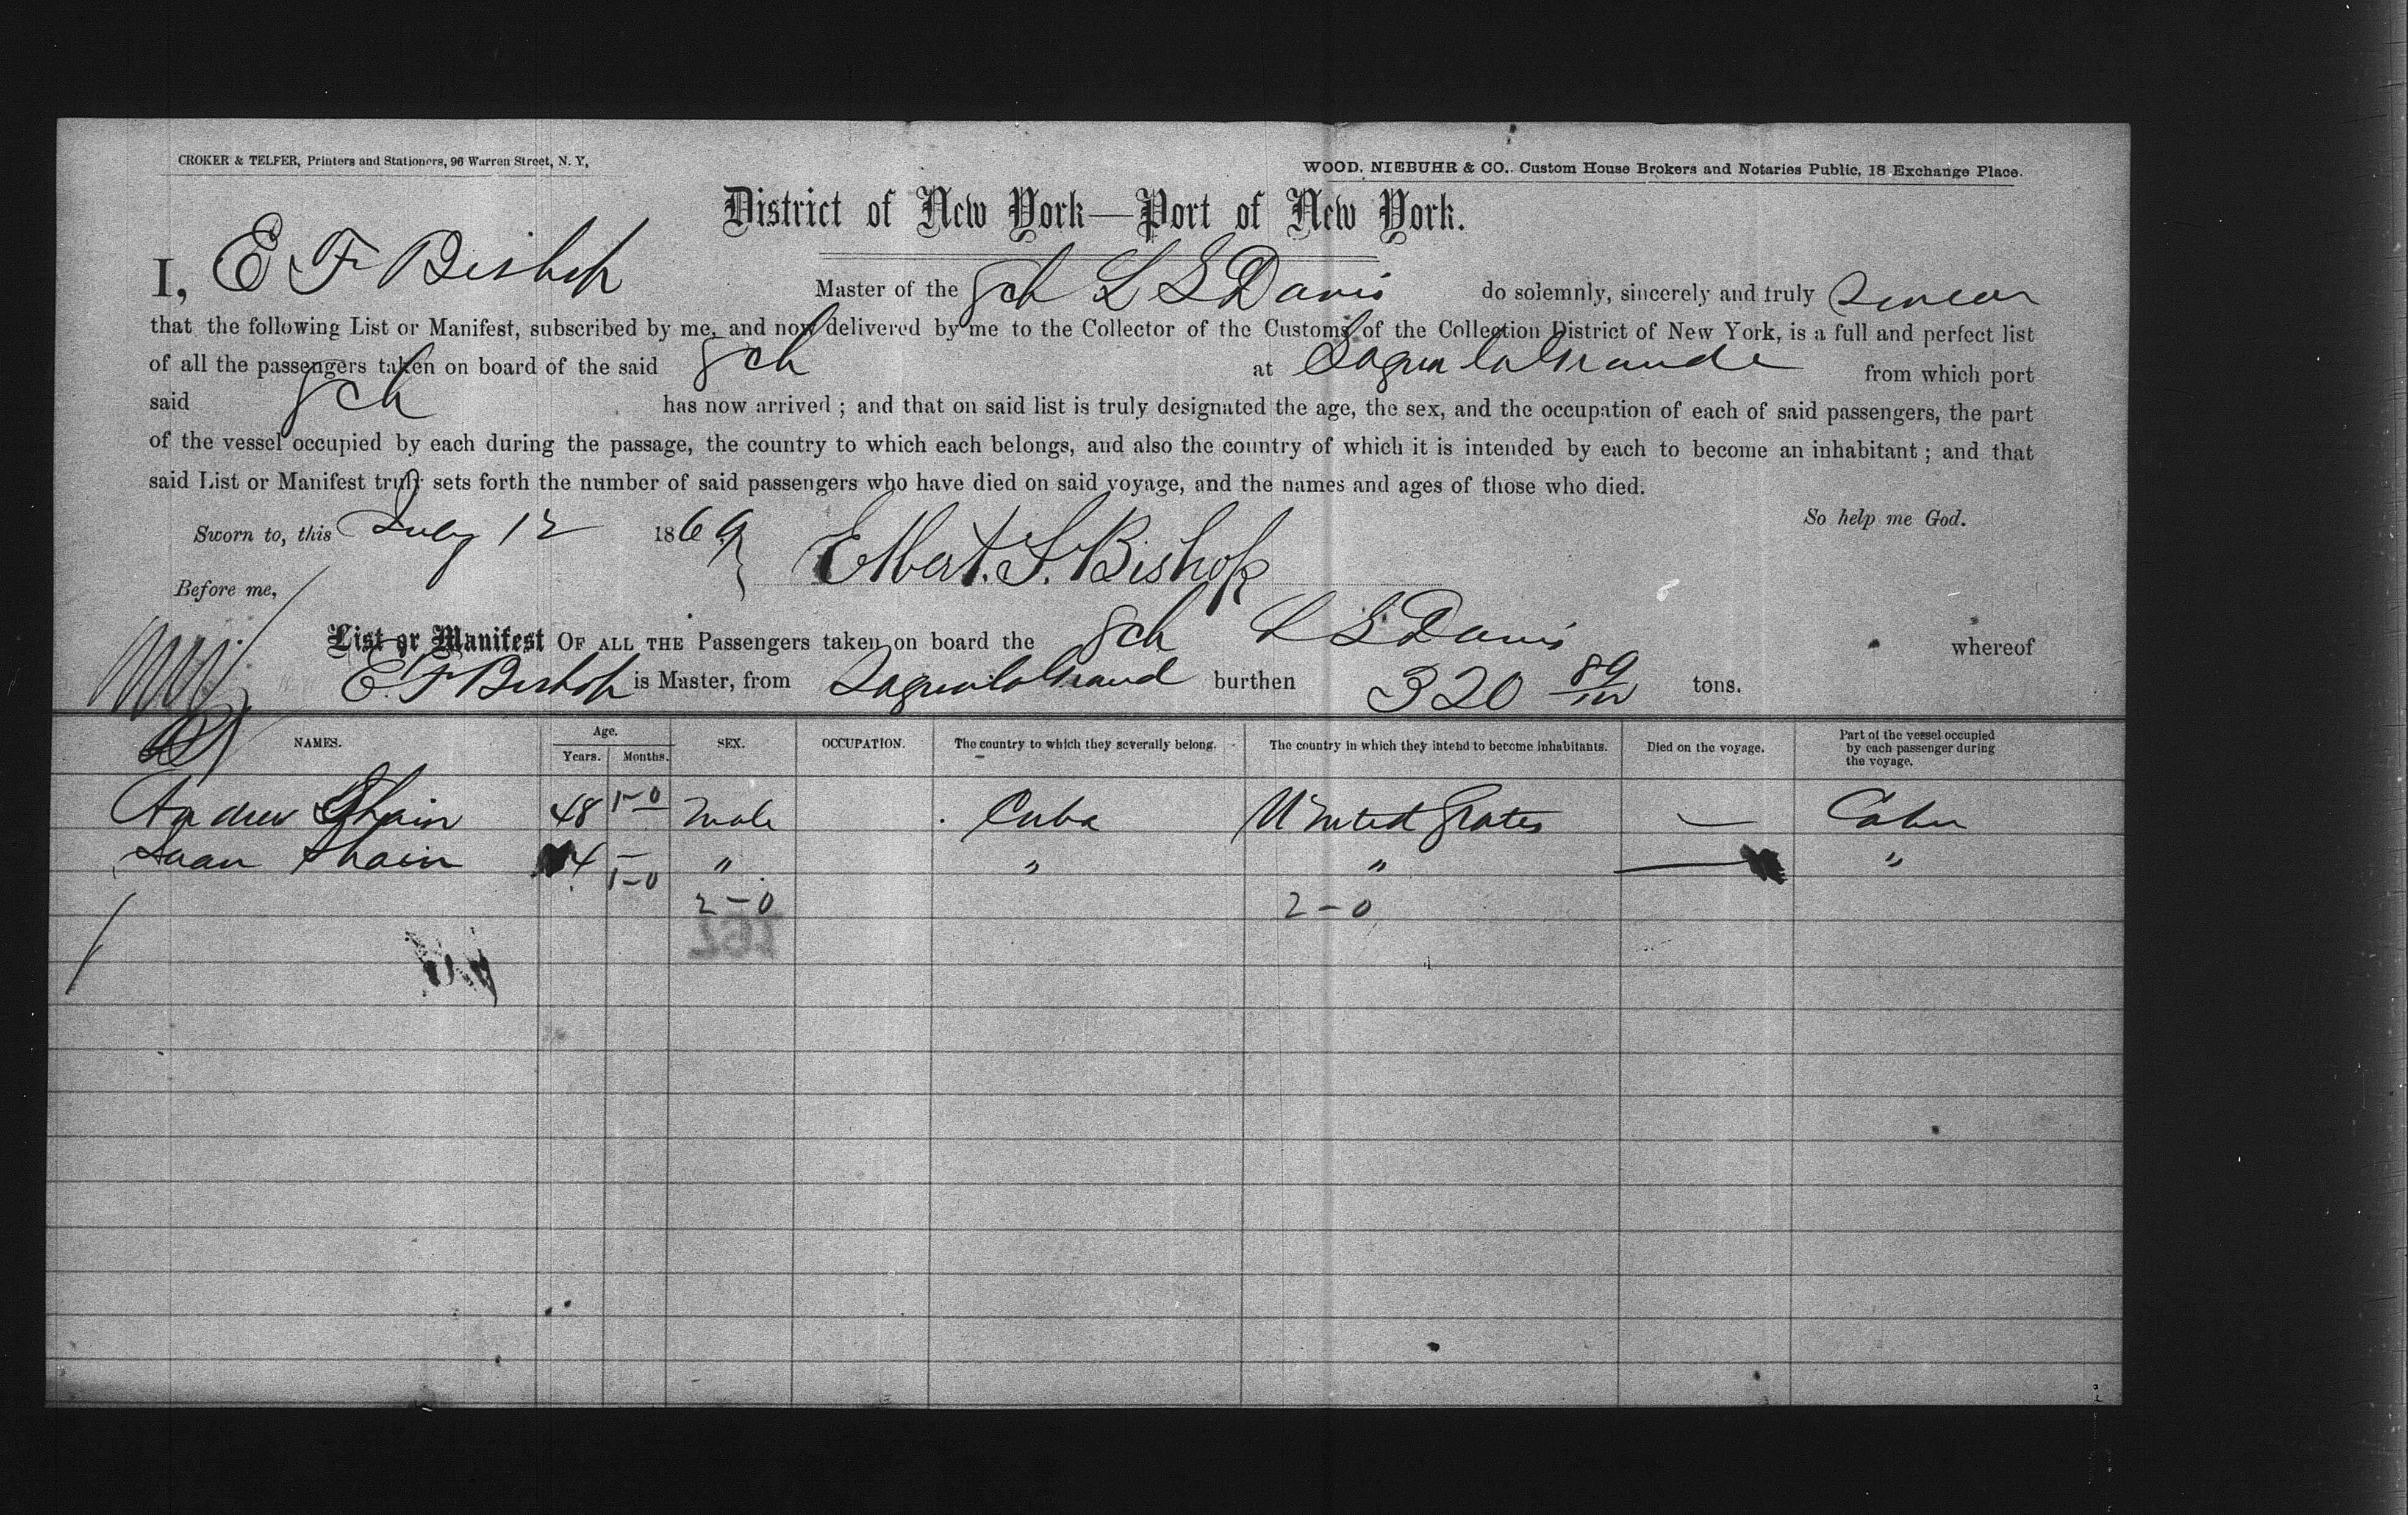 CROKER & TELFER, Printers and Stationers, 96 Warren Street, N. Y,
WOOD, NIEBUHR & CO.. Custom House Brokers and Notaries Public, 18 Exchange Place.
District of New York—Port of New York.
I, E F Bishop Master of the Sch L S Davis do solemnly, sincerely and truly swear
that the following List or Manifest, subscribed by me, and now delivered by me to the Collector of the Customs of the Collection District of New York, is a full and perfect list
of all the passengers taken on board of the said Sch at Sagua la Grande from which port
said Sch has now arrived ; and that on said list is truly designated the age, the sex, and the occupation of each of said passengers, the part
of the vessel occupied by each during the passage, the country to which each belongs, and also the country of which it is intended by each to become an inhabitant ; and that
said List or Manifest truly sets forth the number of said passengers who have died on said voyage, and the names and ages of those who died.
So help me God.
Sworn to, this July 12 1869
Elbert. F. Bishop
Before me,
List or Manifest OF ALL THE Passengers taken on board the Sch L S Davis whereof
E. F Bishop is Master, from Sagua la Grand burthen 320 89/100 tons.
NAMES. Age. Years. Months. SEX. OCCUPATION. The country to which they severally belong. The country in which they intend to become inhabitants. Died on the voyage. Part of the vessel occupied by each passenger during the voyage.
Andrew Shain 48 1-0 Male Cuba United States — Cabin
Juan Shain 4 — " " " — "
1-0
2-0 2-0